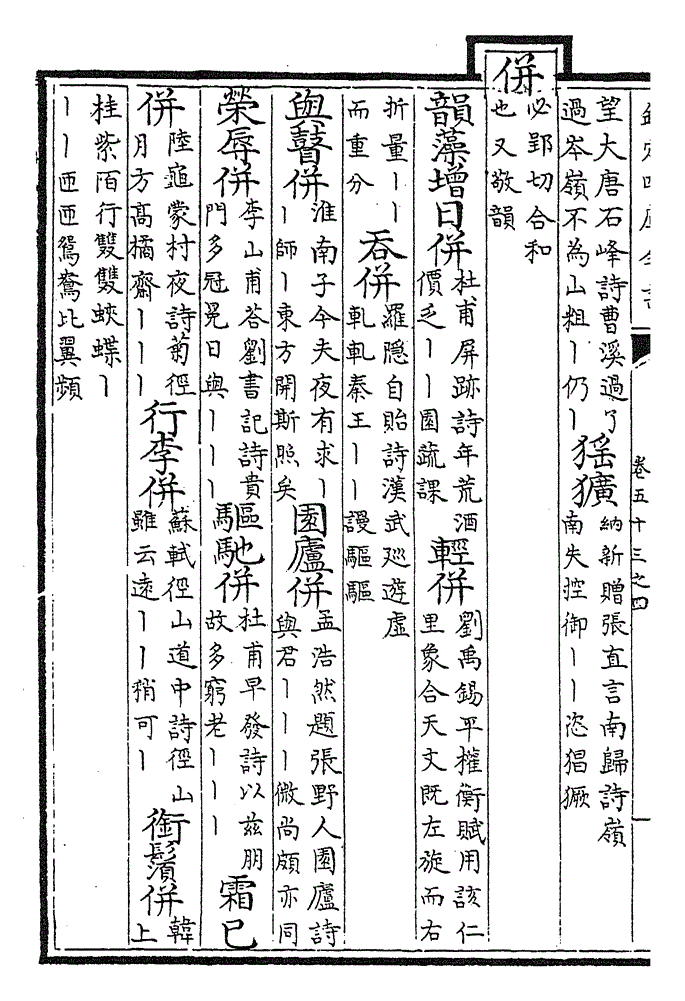 卷五十三之四
望大唐石峰詩曹溪過了
過岑嶺不為山粗丨仍丨
猺獷
納新贈張直言南歸詩嶺
南失控御丨丨恣猖獗
併
必郢切合和
也又敬韻
韻藻增日併
杜甫屏跡詩年荒酒
價乏丨丨園蔬課
輕併
劉禹錫平權衡賦用該仁
里象合天文既左旋而右
折量丨丨
而重分
吞併
羅隱自貽詩漢武巡遊虛
軋軋秦王丨丨謾驅驅
與瞽併
淮南子今夫夜有求丨
丨師丨東方開斯照矣
園廬併
孟浩然題張野人園廬詩
與君丨丨丨微尚頗亦同
榮辱併
李山甫荅劉書記詩貴
門多冠冕日與丨丨丨
驅馳併
杜甫早發詩以兹朋
故多窮老丨丨丨
霜已
併
陸龜蒙村夜詩菊徑
月方高橘齋丨丨丨
行李併
蘇軾徑山道中詩徑山
雖云遠丨丨稍可丨
銜鬚併
韓
上
桂紫陌行雙雙蛺蝶丨
丨丨匝匝鴛鴦比翼頻